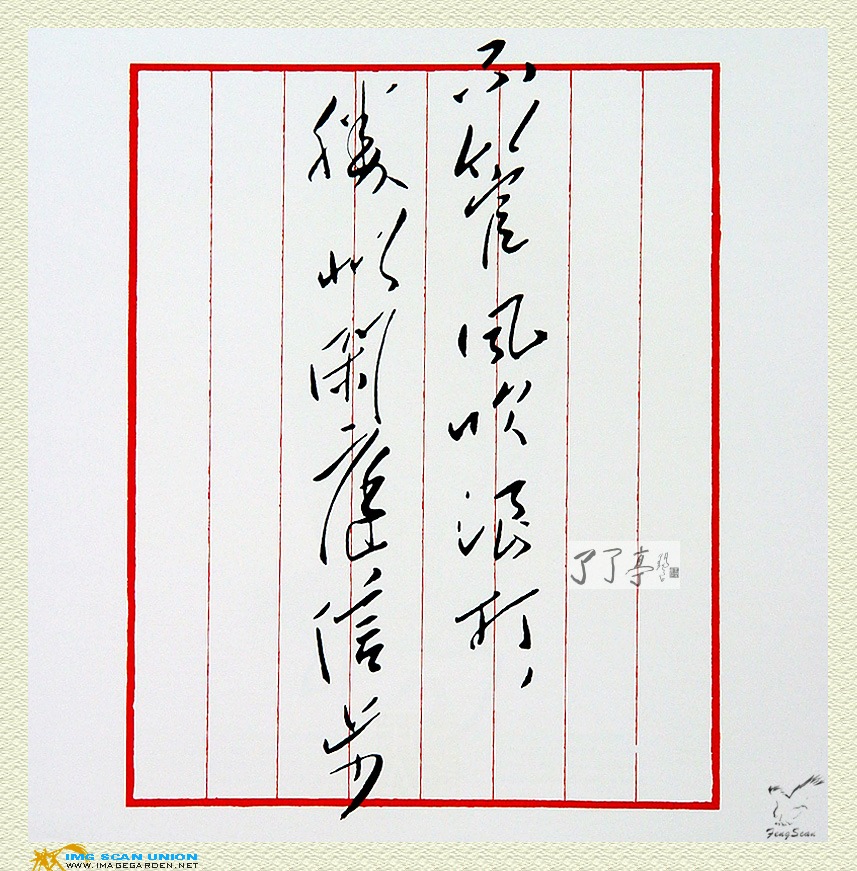 不管风吹浪打，
胜似闲庭信步
了了亭
FengScan
IMG SCAN UNION
WWW.IMAGEGARDEN.NET